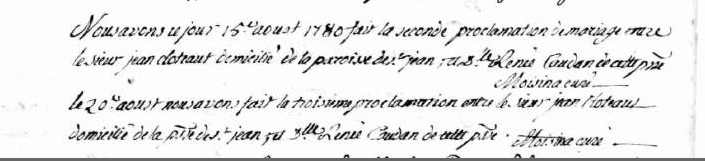 Nous avons ce jour 15e aoust 1780 fait la seconde proclamation de mariage entre
le sieur jean cloteaut domicilié de la paroisse de st jean, et Dlle Renée Coudan de cette psse
Moisina curé
le 20e aoust nous avons fait la troisième proclamation entre le sieur jean Cloteaut
domicilié de la psse de st jean, et Dlle Renée Coudan de cette psse. Moisina curé